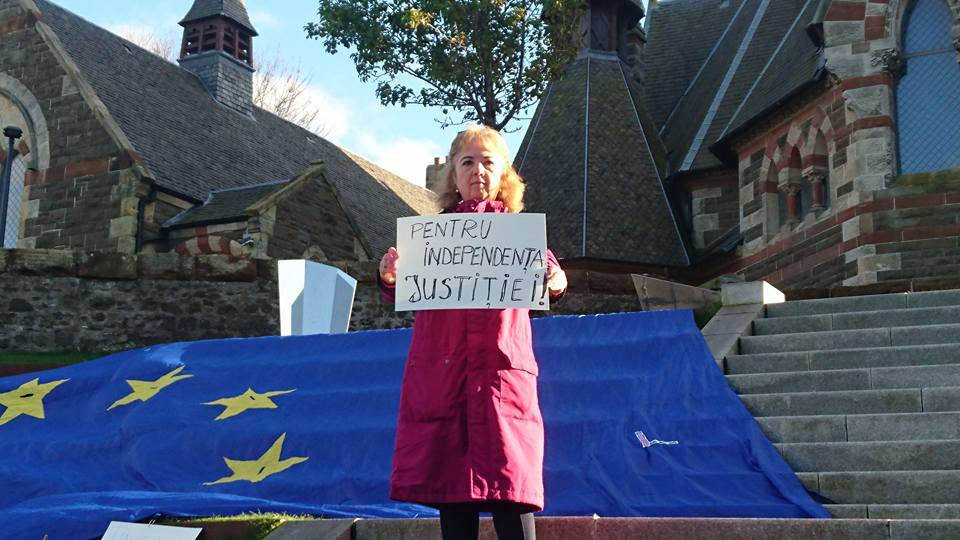 PENTRU
INDEPENDENȚA
JUSTIȚIEI!